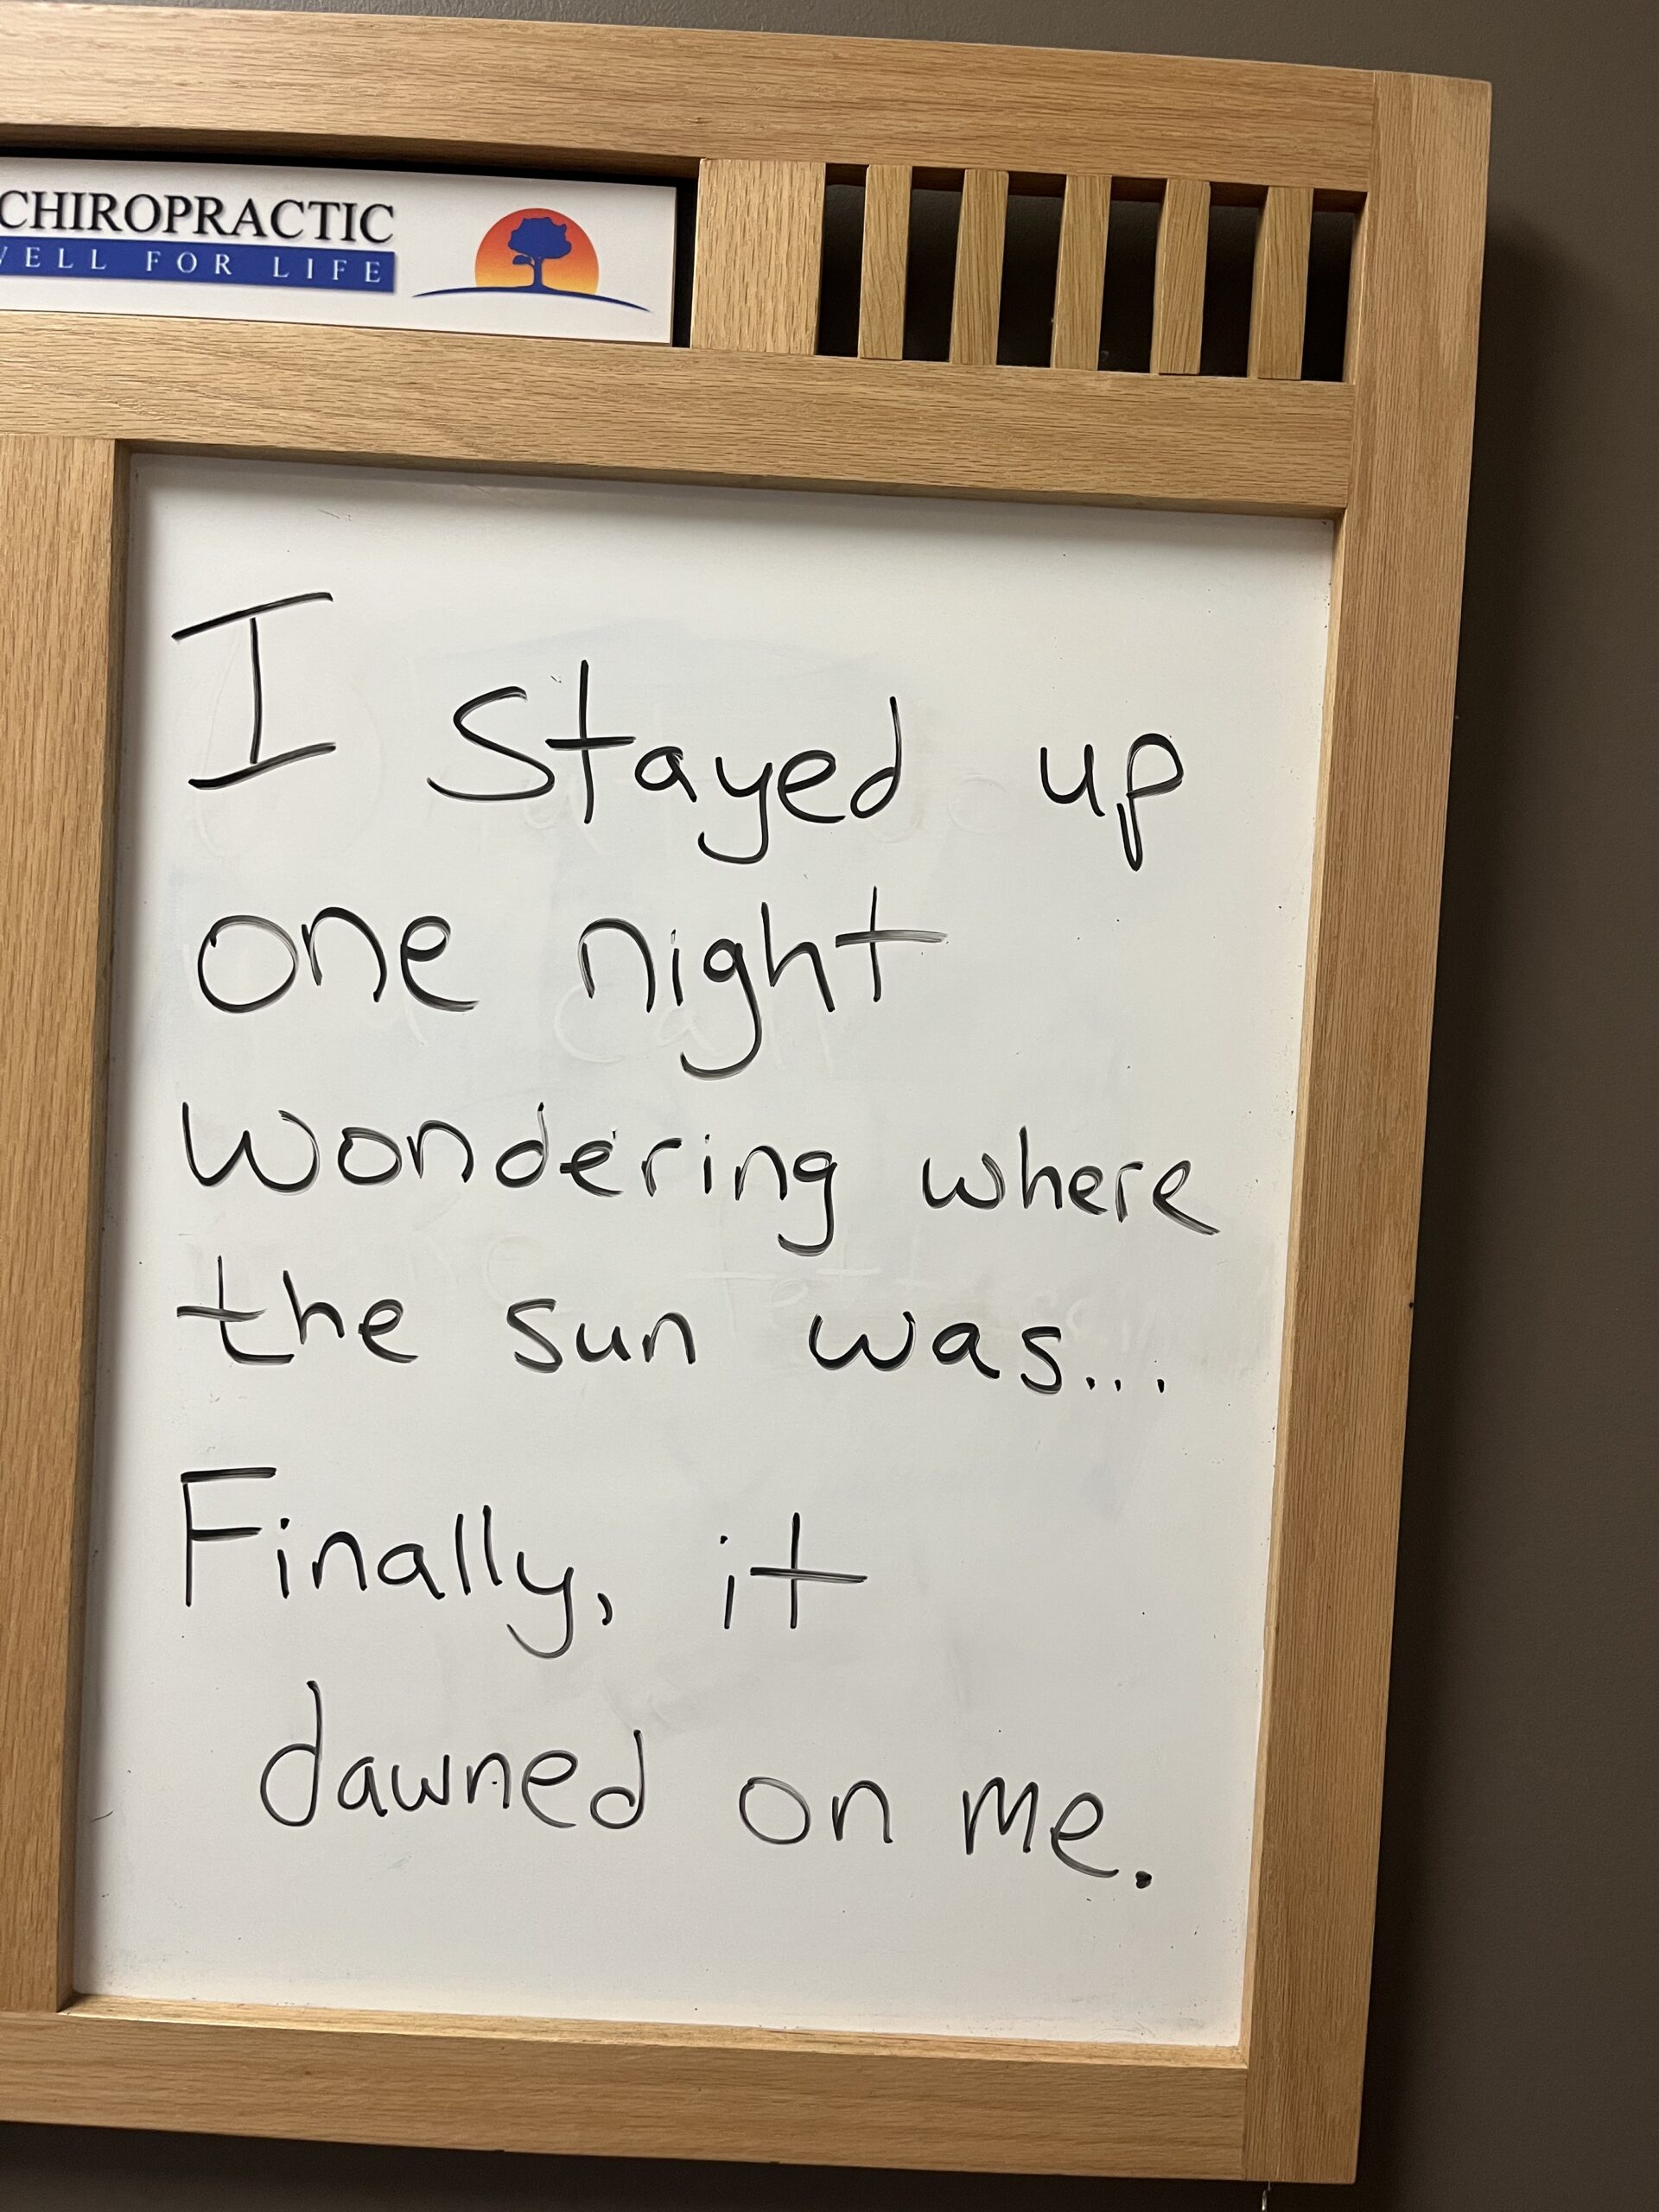 CHIROPRACTIC
WELL FOR LIFE
I stayed up
one night
wondering where
the sun was...
Finally, it
dawned on me.